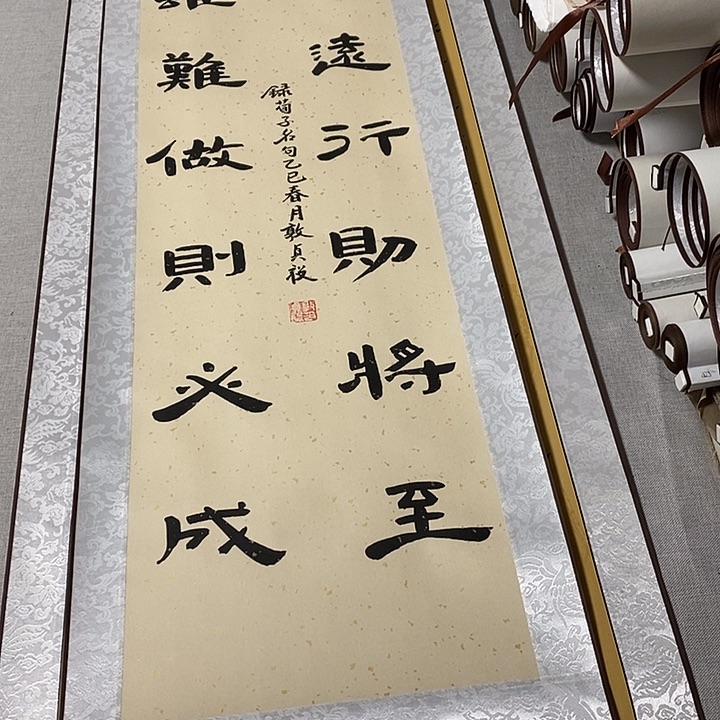 遠行則將至
錄荀子名句乙巳春月敦貞
雖難做則必成